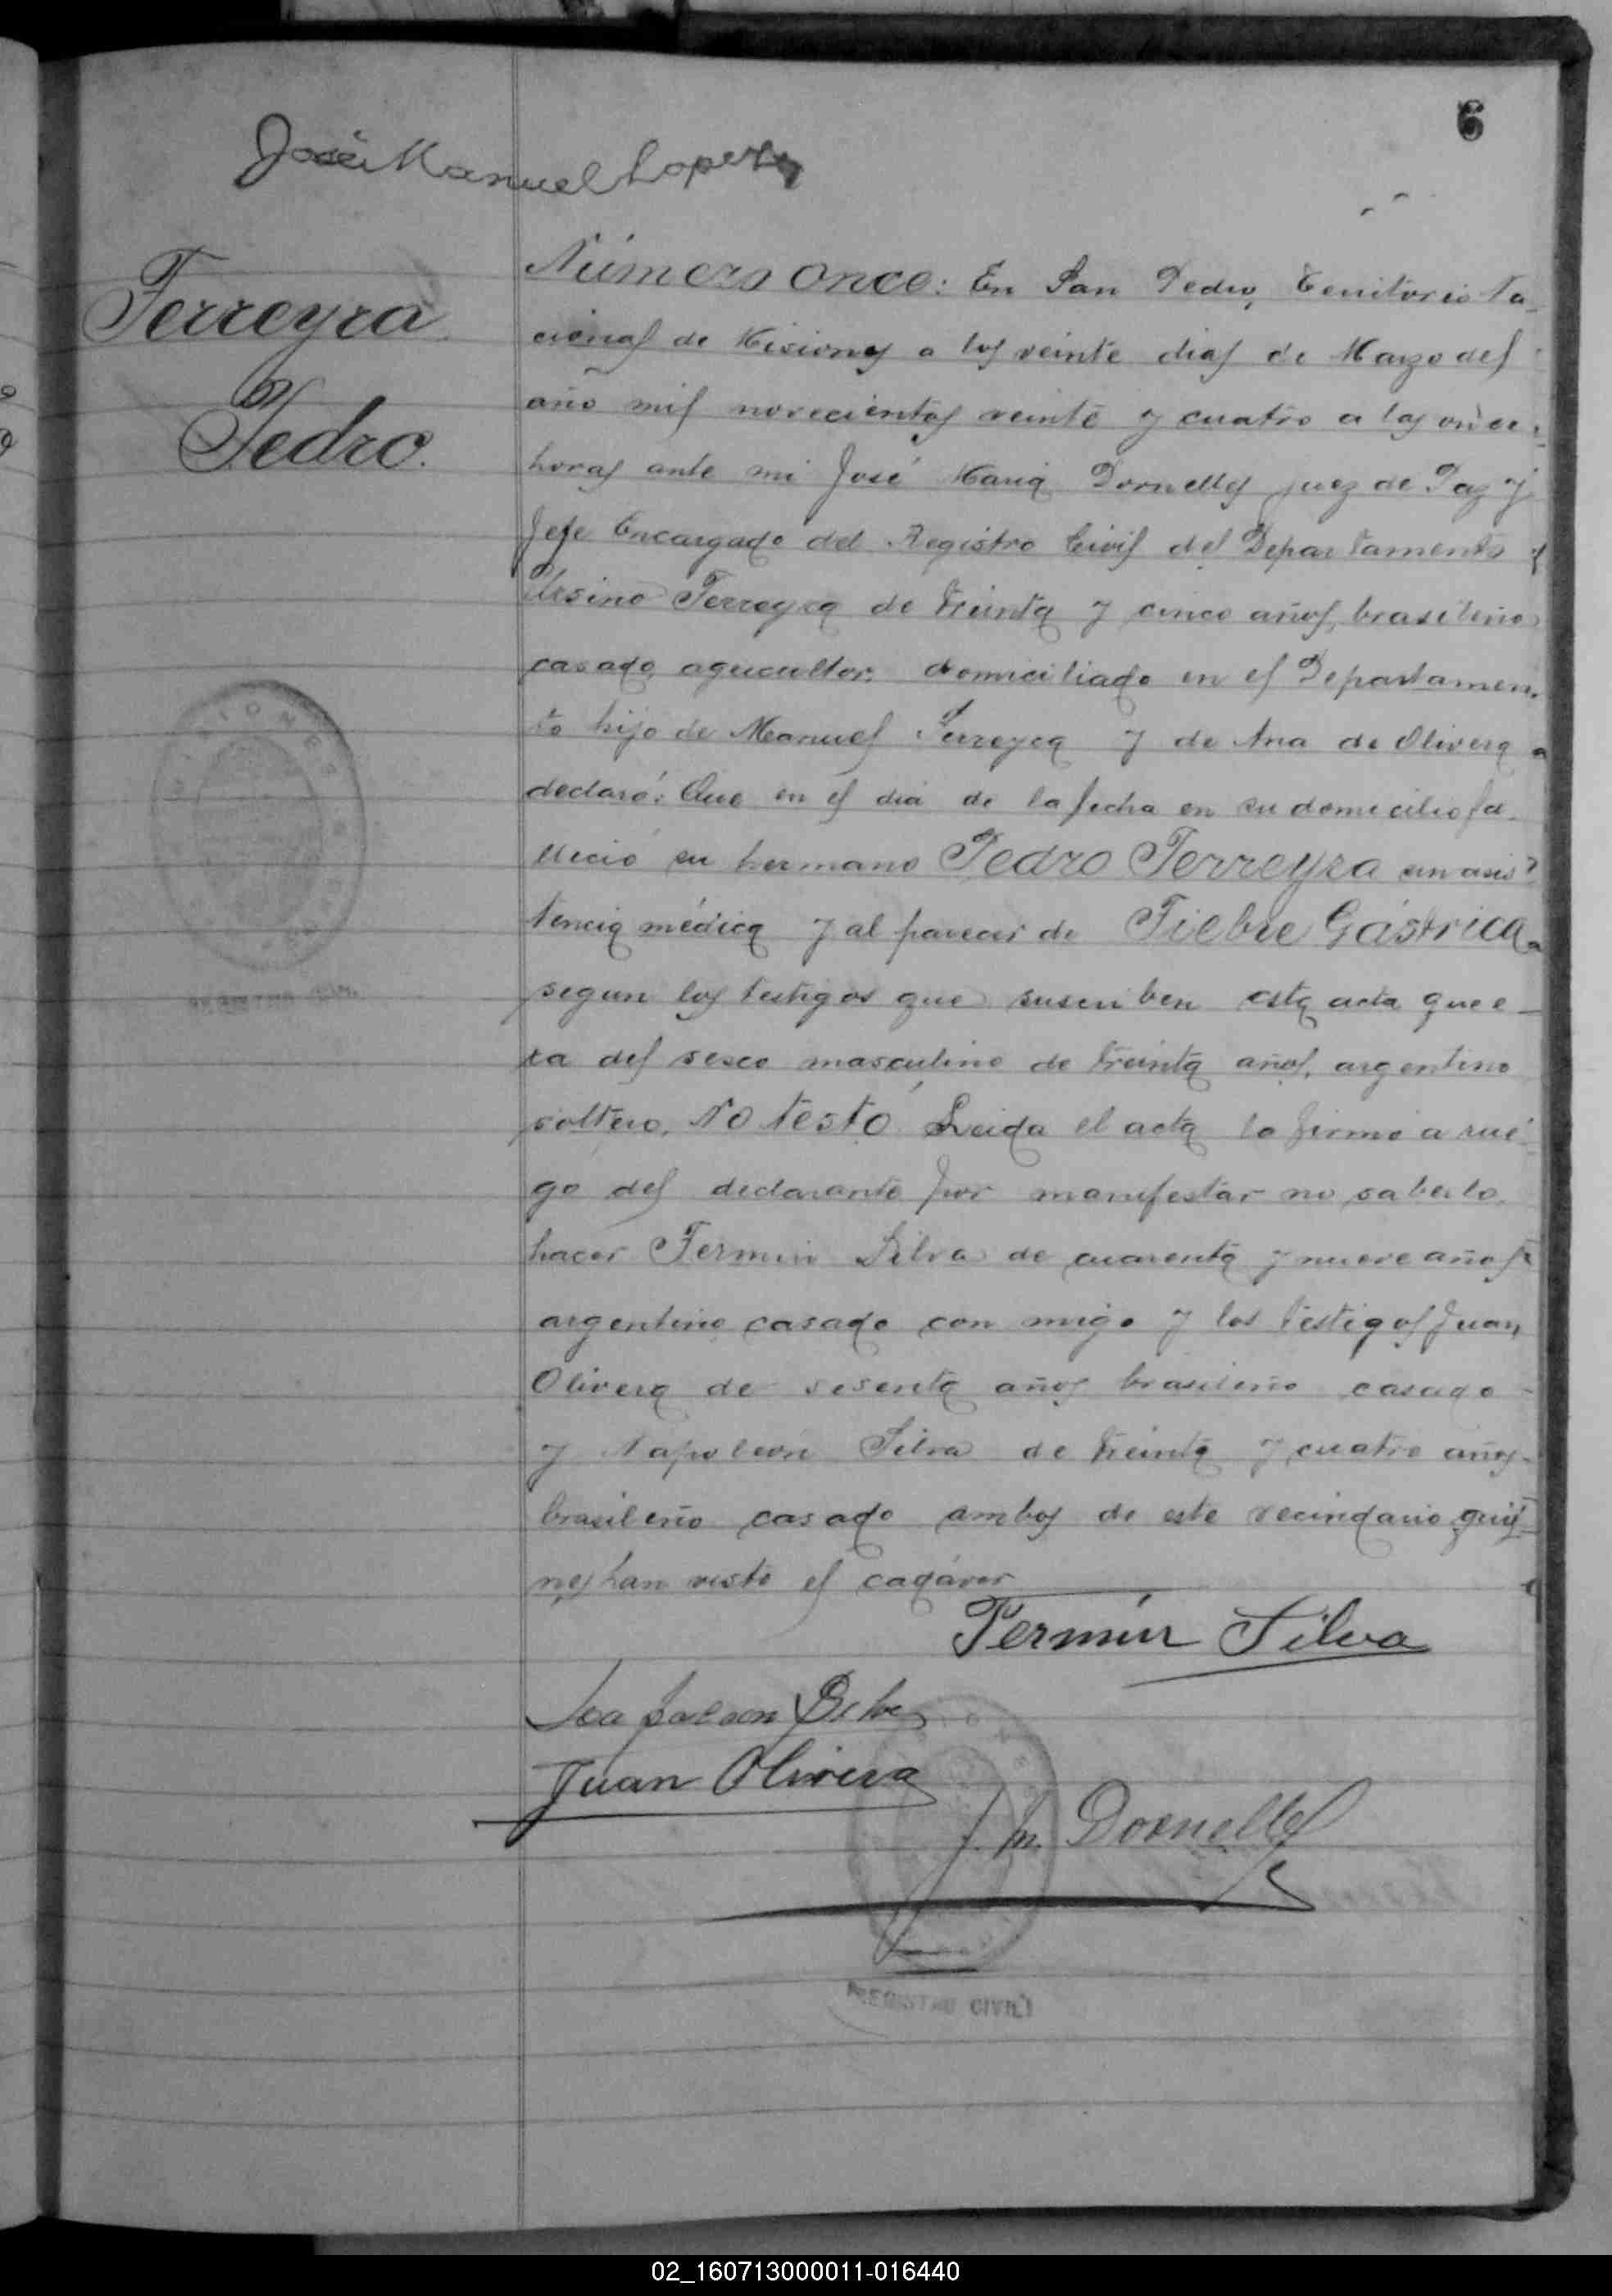 6
José Manuel Lopez
Ferreyra
Pedro.
Número Once: En San Pedro, Territorio Na-
cional de Misiones a los veinte dias de Marzo del
año mil novecientos veinte y cuatro a las once
horas ante mi José Maria Dornelles juez de Paz y
Jefe Encargado del Registro Civil del Departamento
Ursino Ferreyra de treinta y cinco años, brasileño
casado, agricultor, domiciliado en el Departamen-
to hijo de Manuel Ferreyra y de Ana de Olivera
declaró: Que en el dia de la fecha en su domicilio fa-
lleció su hermano Pedro Ferreyra sin asis-
tencia médica y al parecer de Fiebre Gástrica
segun los testigos que suscriben esta acta que e-
ra del sexo masculino de treinta años, argentino
soltero. No testó. Leida el acta la firmó a rue-
go del declarante por manifestar no saberlo
hacer Fermin Silva de cuarenta y nueve años
argentino casado con migo y los testigos Juan
Olivera de sesenta años brasileño casado
y Napoleón Silva de treinta y cuatro años
brasileño casado ambos de este vecindario quie-
nes han visto el cadáver
Fermín Silva
Napoleon Silva
Juan Olivera
J. M. Dornelles
MISIONES
REGISTRO CIVIL
02_160713000011-016440